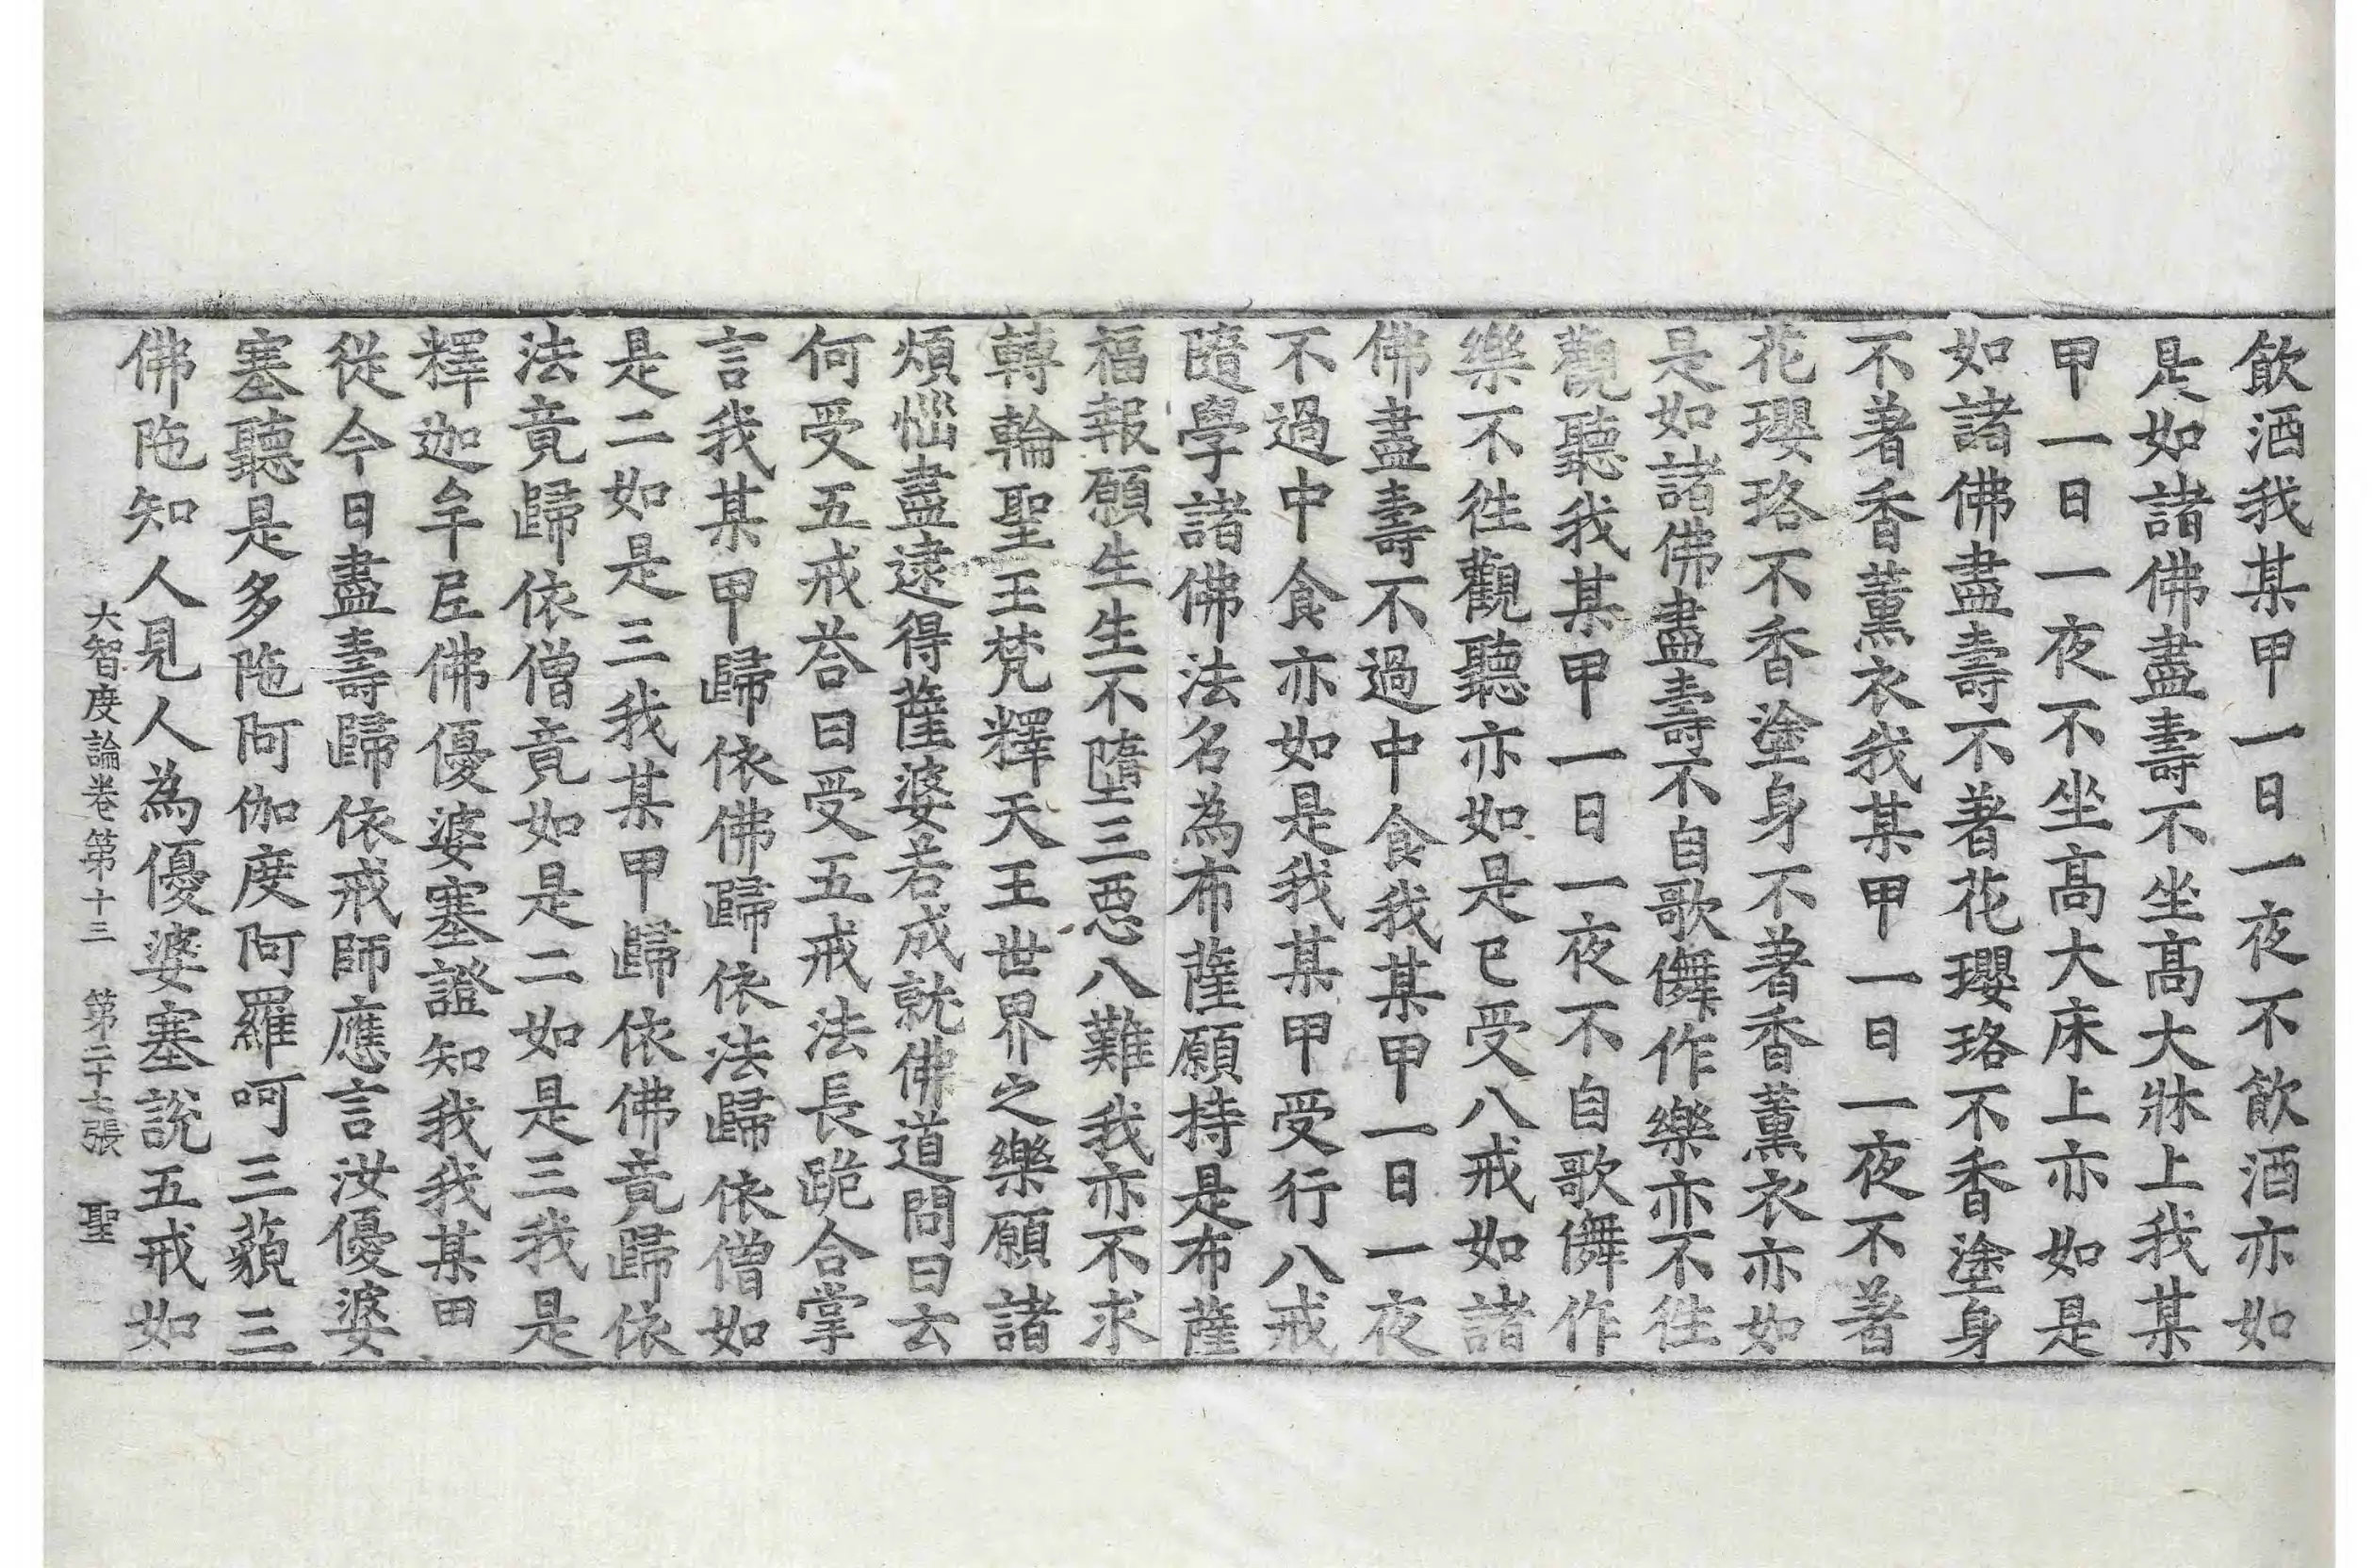 飲酒我某甲一日一夜不飲酒亦如
是如諸佛盡壽不坐高大牀上我某
甲一日一夜不坐高大床上亦如是
如諸佛盡壽不著花瓔珞不香塗身
不著香薰衣我某甲一日一夜不著
花瓔珞不香塗身不著香薰衣亦如
是如諸佛盡壽不自歌儛作樂亦不往
觀聽我某甲一日一夜不自歌儛作
樂不往觀聽亦如是已受八戒如諸
佛盡壽不過中食我某甲一日一夜
不過中食亦如是我某甲受行八戒
隨學諸佛法名為布薩願持是布薩
福報願生生不墮三惡八難我亦不求
轉輪聖王梵釋天王世界之樂願諸
煩惱盡逮得薩婆若成就佛道問曰云
何受五戒荅曰受五戒法長跪合掌
言我某甲歸依佛歸依法歸依僧如
是二如是三我某甲歸依佛竟歸依
法竟歸依僧竟如是二如是三我是
釋迦牟尼佛優婆塞證知我我某甲
從今日盡壽歸依戒師應言汝優婆
塞聽是多陁阿伽度阿羅呵三藐三
佛陁知人見人為優婆塞說五戒如
大智度論卷第十三 第二十七張 聖